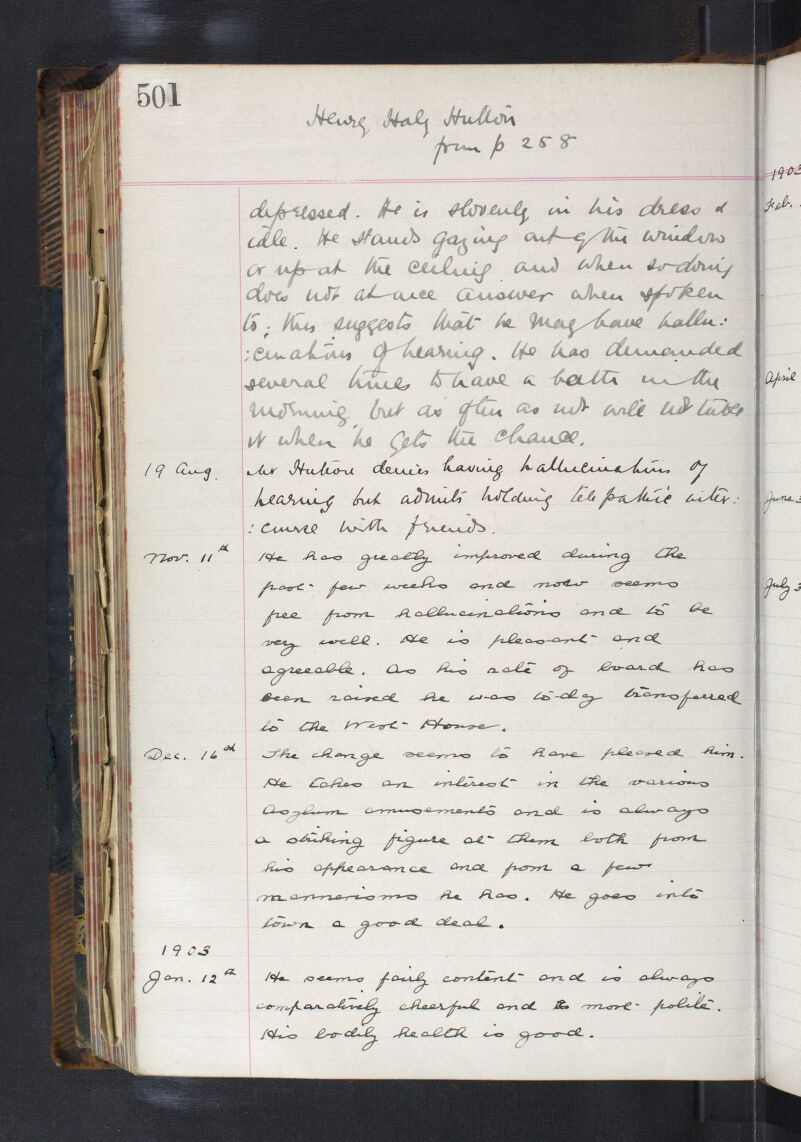 501
Henry Haly Hutton
from p 258
depressed. He is slovenly in his dress &
idle. He stands gazing out of the window
or up at the ceiling and when so doing
does not at once answer when spoken
to; this suggests that he may have hallu:
:cinations of hearing. He has demanded
several times to have a bath in the
morning, but as often as not will not take
it when he gets the chance.
19 Aug. Mr Hutton denies having hallucinations of
hearing but admits holding telepathic inter:
:course with friends.
Nov. 11th He has greatly improved during the
past few weeks and now seems
free from hallucinations and to be
very well. He is pleasant and
agreeable. As his rate of board has
been raised he was to-day transferred
to the West House.
Dec. 16th The change seems to have pleased him.
He takes an interest in the various
Asylum amusements and is always
a striking figure at them both from
his appearance and from a few
mannerisms he has. He goes into
town a good deal.
1903
Jan. 12th He seems fairly content and is always
comparatively cheerful and most polite.
His bodily health is good.
1903
Feb.
April
June 3
July 3